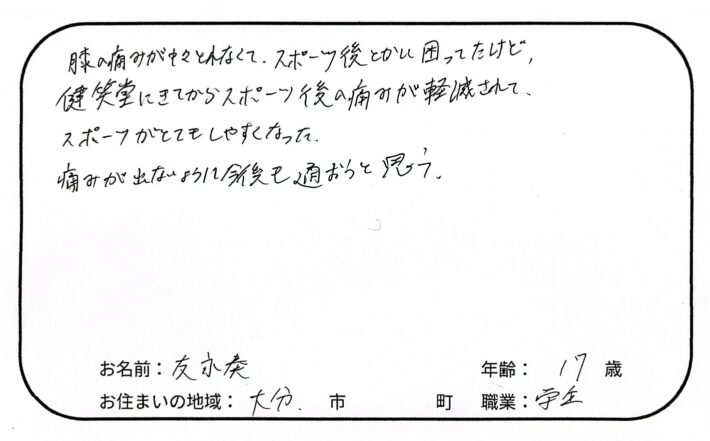 膝の痛みが中々とれなくて、スポーツ後とかに困ってたけど、
健笑堂にきてからスポーツ後の痛みが軽減されて、
スポーツがとてもしやすくなった。
痛みが出ないように今後も通おうと思う。
お名前：友永奏 年齢：17歳
お住まいの地域：大分 市 町 職業：学生